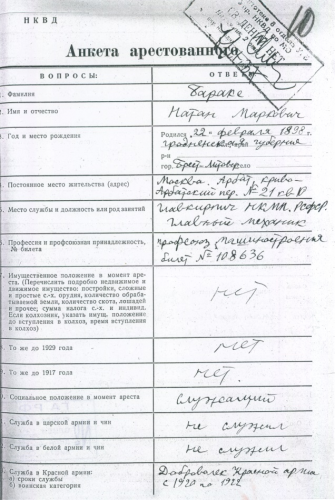 НКВД
10
Анкета арестованного
ВОПРОСЫ:
ОТВЕТЫ
1. Фамилия
2. Имя и отчество
Натан Маркович
3. Год и место рождения
Родился 22 февраля 1892 г.
гродненская губерния
р-н
гор. Брест-Литовск село
4. Постоянное место жительства (адрес)
Москва. Арбат, криво-
Арбатский пер. № 21 кв 10
5. Место службы и должность или род занятий
Главный механик
6. Профессия и профсоюзная принадлежность,
№ билета
профсоюз машиностроения
билет № 108636
7. Имущественное положение в момент аре-
ста. (Перечислить подробно недвижимое и
движимое имущество: постройки, сложные
и простые с.-х. орудия, количество обраба-
тываемой земли, количество скота, лошадей
и прочее; сумма налога с.-х. и индивид.
Если колхозник, указать имущ. положение
до вступления в колхоз, время вступления
в колхоз)
нет
То же до 1929 года
нет
То же до 1917 года
нет.
Социальное положение в момент ареста
служащий
Служба в царской армии и чин
не служил
Служба в белой армии и чин
не служил
Служба в Красной армии:
а) сроки службы
б) воинская категория
Доброволец Красной армии
с 1920 по 1922